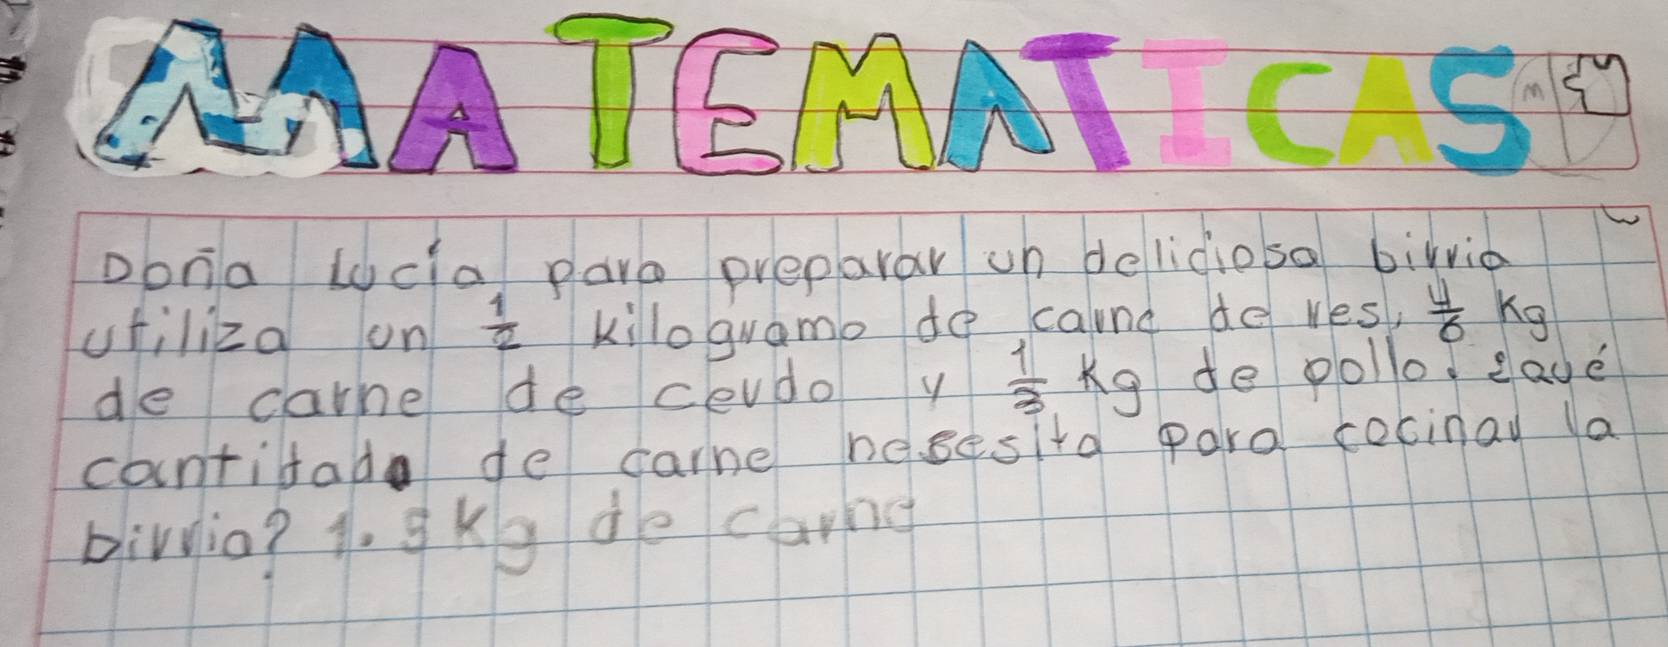 MATEMATICAS
Doña Lucía, para preparar un delidiosa birria
utiliza un 1/2 kilogramo de carne de res, 4/6 Kg
de carne de cerdo y 1/3 Kg de pollo ¿aué
cantidada de carne nesesita para cocinar la
birria? 1.5 Kg de carne